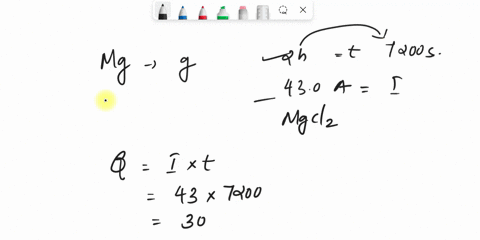 Mg → g
2h = t 7200s.
43.0 A = I
MgCl2
Q = I × t
= 43 × 7200
= 30